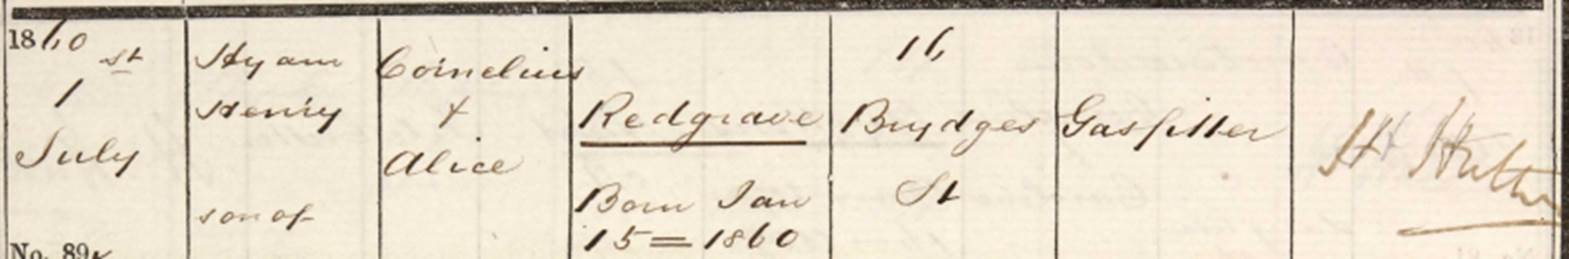 1860
1st
July
No. 89
Hyam
Henry
son of
Cornelius
+
Alice
Redgrave
Born Jan
15=1860
16
Brydges
St
Gasfitter